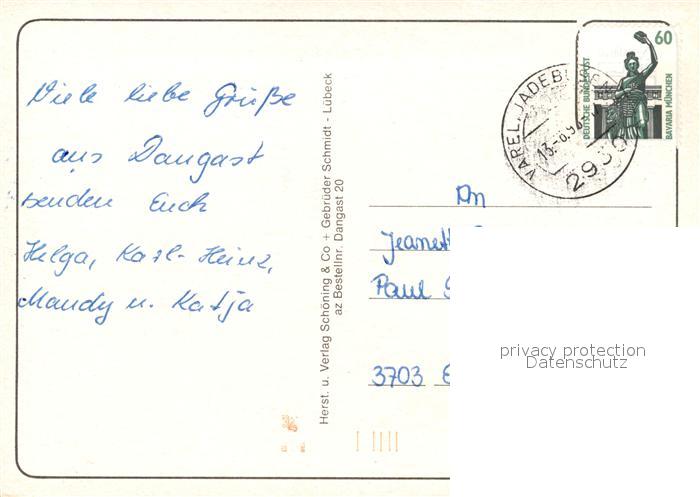 Viele liebe Grüße
aus Dangast
senden Euch
Helga, Karl-Heinz,
Mandy u. Katja
Herst. u. Verlag Schöning & Co + Gebrüder Schmidt - Lübeck
az Bestellnr. Dangast 20
60
DEUTSCHE BUNDESPOST
BAVARIA MÜNCHEN
VAREL, JADEBUSEN
2930
An
Paul
3703
privacy protection
Datenschutz